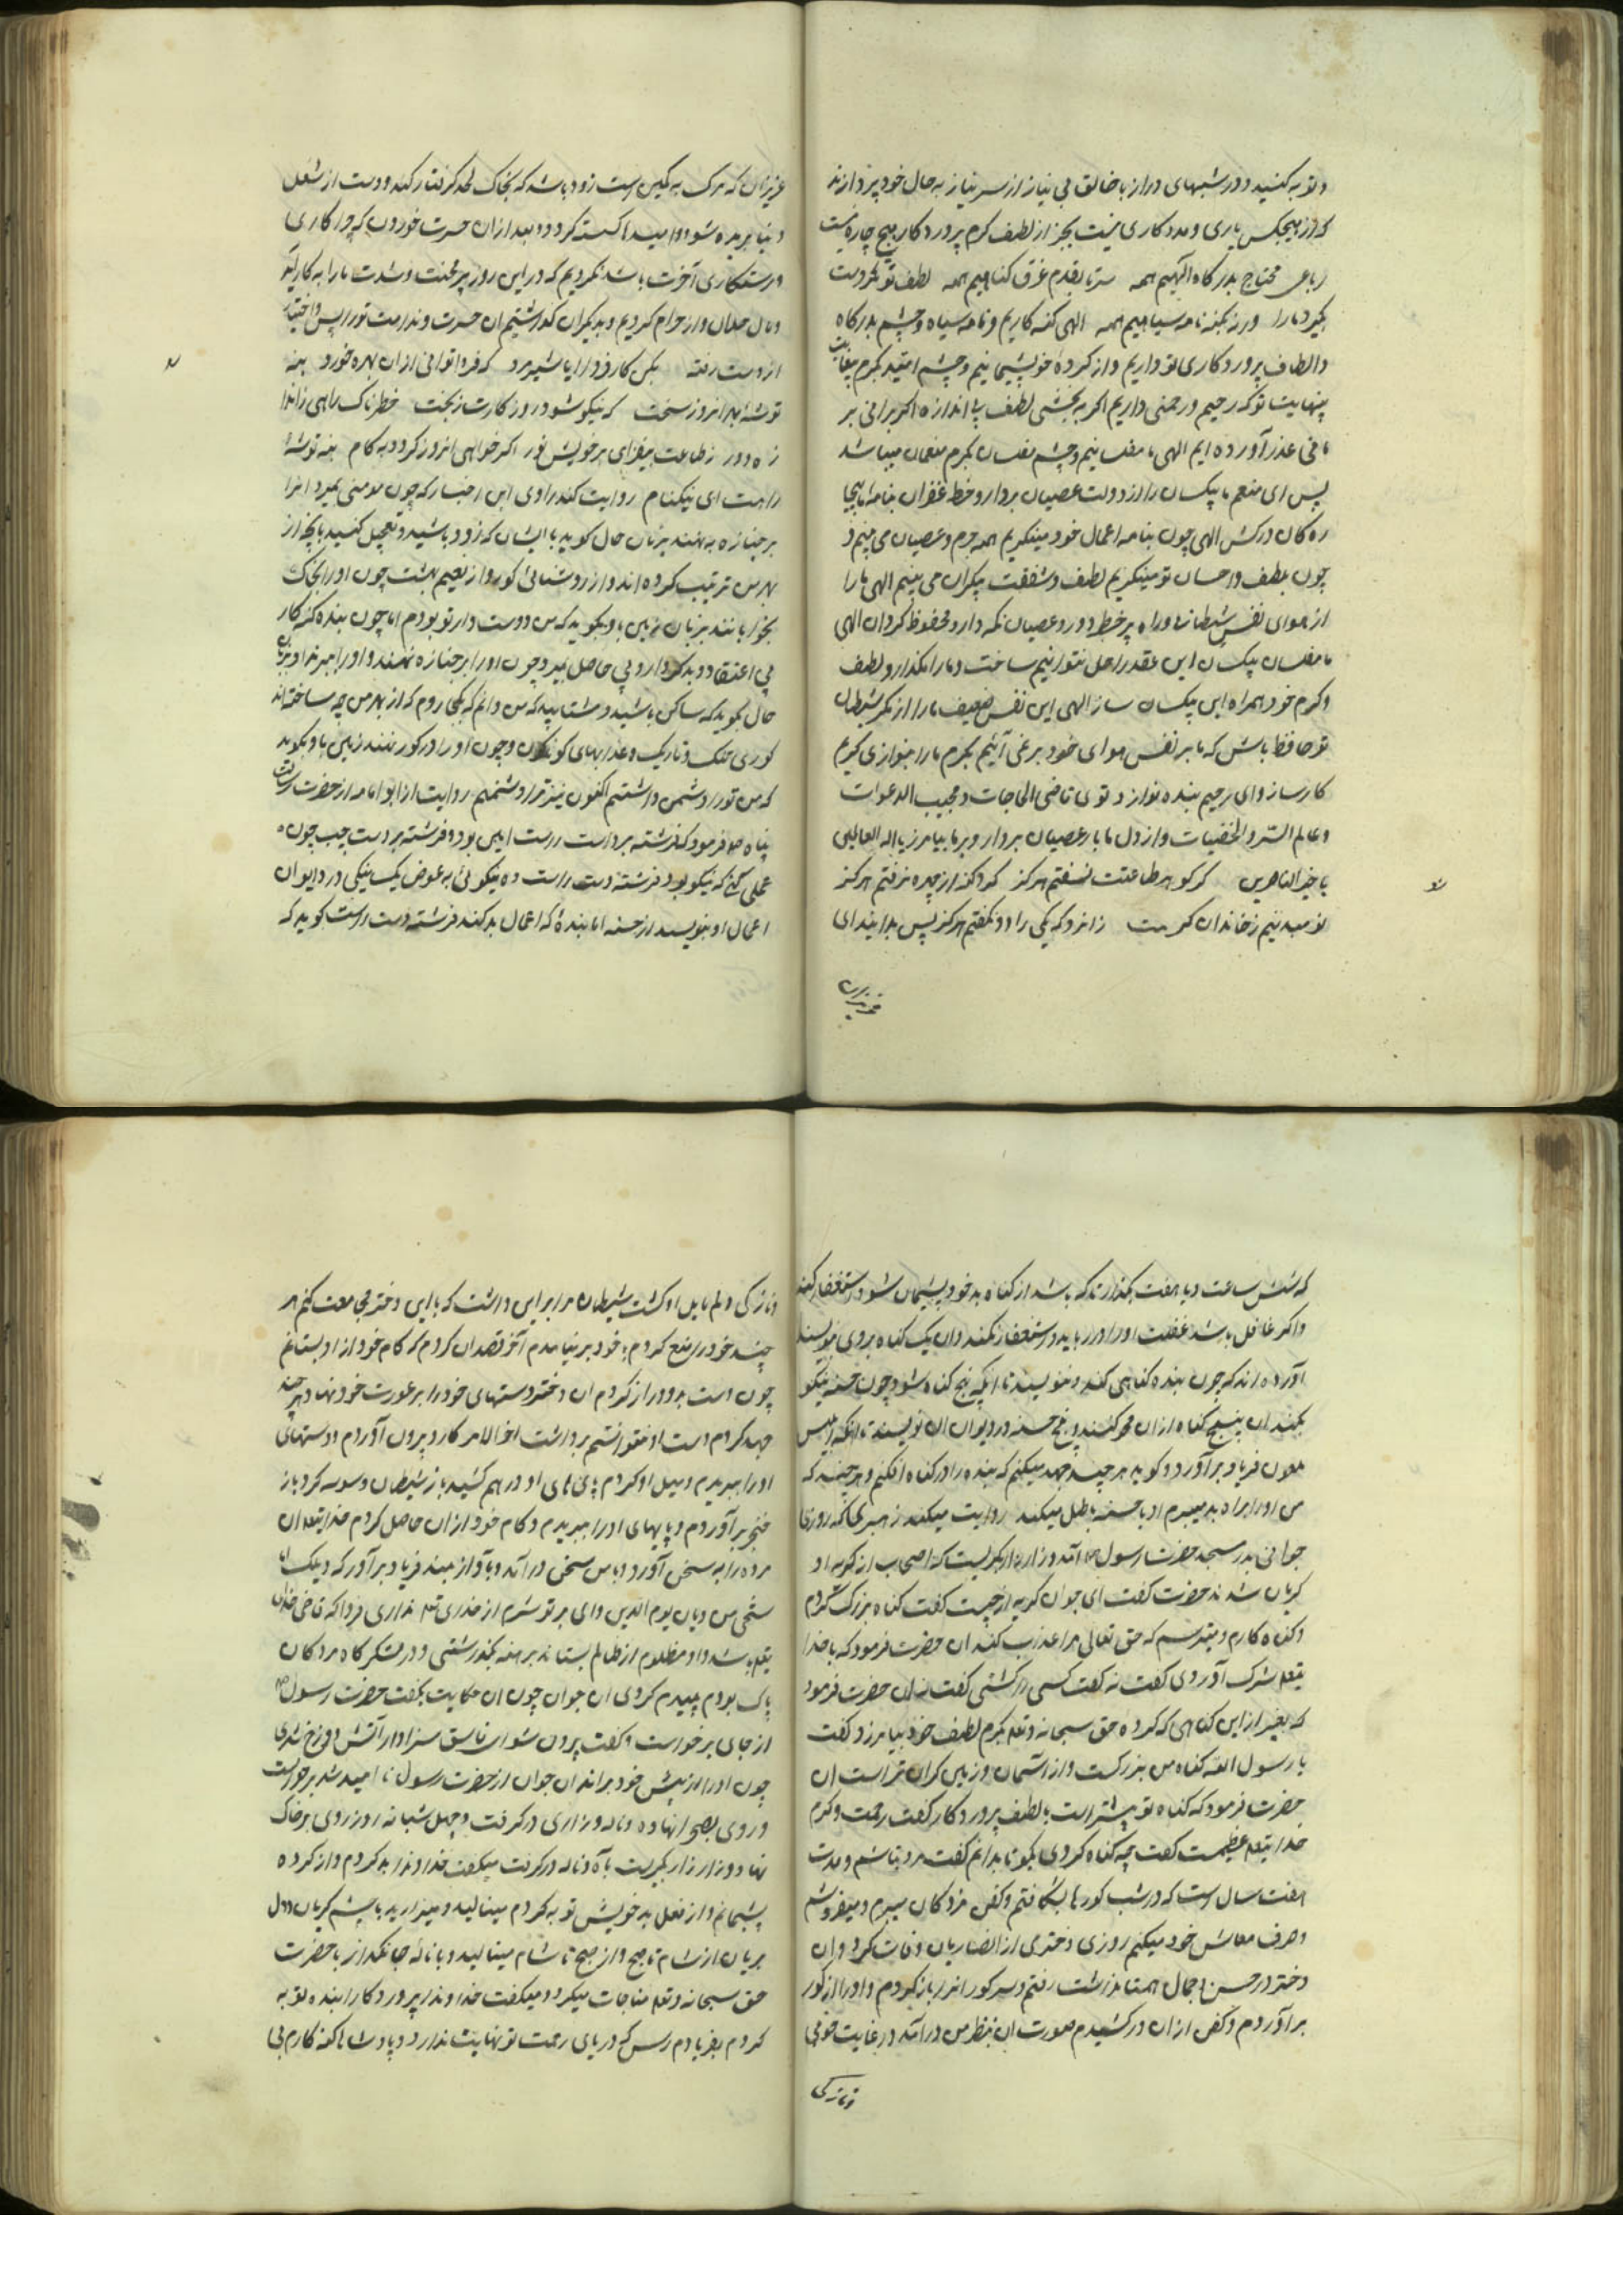 و توبه کنید و در شبهای دراز با خالق بی نیاز از سر نیاز به حال خود پردازند
که از هیچکس یاری و مددکاری نیست بجز از لطف کرم پروردکار هیچ چاره نیست
رباعی محتاج بدرکاه الهیم همه سرتا بقدم غرق کناهیم همه لطف تو مکر دست
بکیرد ما را ورنه بکنه نامه سیاهیم همه الهی کنه کاریم و نامه سیاه و چشم بدرکاه
و الطاف پروردکاری تو داریم و از کردهٔ خود پشیمانیم و چشم امید بکرم بیغایت
بینهایت تو که رحیم و رحمنی داریم اکر به بخشی لطف بی اندازه اکر برانی بر
ما فی عذر آورده ایم الهی ما مفلسانیم و چشم مفلسان بکرم منعمان میباشد
پس ای منعم ما بیکسان را از دولت عصیان بردار و خط غفران بنامه ما بیچا
ره کان درکش الهی چون بنامه اعمال خود مینکریم همه جرم و عصیان می بینم و
چون بلطف و احسان تو مینکریم لطف و شفقت بیکران می بینیم الهی ما را
از هوای نفس شیطان و راه پر خطر دور و عصیان نکه دار و محفوظ کردان الهی
ما مفلسان بیکسان این عقد را حل نتوانیم ساخت و ما را مکذار و لطف
و کرم خود همراه این بیکسان ساز الهی این نفس ضعیف ما را از مکر شیطان
تو حافظ باش که ما بر نفس هوای خود بر نمی آئیم بکرم ما را بنوازی کریم
کارساز و ای رحیم بنده نواز و توی قاضی الحاجات و مجیب الدعوات
و عالم السر و الخفیات و از دل ما بار عصیان بردار و بر ما بیامرز یا اله العالمین
یا خیر الناصرین کر کوهر طاعتت نسفتم هرکز کرد کنه از چهره نرفتم هرکز
نومید نیم ز خاندان کرمت زانرو که یکی را دو نکفتم هرکز پس بدانید ای
عزیزان
عزیزان که مرک به کمین است زود باشد که بخاک لحد کرفتار کند و دست از شغل
دنیا بریده شود و امید ما کسسته کردد و بعد از ان حسرت خوردن که چرا کاری
و رستکاری آخرت باشد نکردیم که در این روز پر محنت و شدت ما را به کار آید
و مال حلال و از حرام کردیم و بدیکران کذاشتیم ان حسرت و ندامت تو را پس و اختیار
از دست رفته بکن کار فردا را یا شیرمرد که فردا توانی از ان بهره خورد بنه
توشهٔ بهر انروز سخت که نیکو شود روز کارت ز بخت خطرناک راهی
ز ه دور ز طاعت بیفزای بر خویش نور اکر خواهی انروز کردد به کام بنه توشهٔ
راهت ای نیکنام روایت کند راوی این اخبار که چون مومنی بمیرد انرا
بر جنازه به نهند بزبان حال کوید با ایشان که زود باشید و تعجیل کنید بانچه از
بهر من ترتیب کرده اند و از روشنائی کور و از نعیم بهشت چون او را بخاک
بخوابانند بزبان زمین باو بکوید که من دوست دار تو بودم اما چون بنده کنه کار
بی اعتقاد و بد کردار و بی حاصل بمیرد چون او را بر جنازه نهند و او را ببرند او بزبان
حال بکوید که ساکن باشید و مشتابید که من دانم که بکجا روم که از بهر من چه ساخته اند
کوری تنک و تاریک و عذابهای کوناکون و چون او را در کور نهند زمین باو بکوید
که من تو را دشمن داشتم اکنون نیز ترا دشمنم روایت از ابو امامه از حضرت رسالت
پناه ص فرمود که فرشته بر دست راست امین بود و فرشته بر دست چپ چون
عملی کنی که نیکو بود فرشته دست راست ده نیکوئی به عوض یک نیکی در دیوان
اعمال او بنویسد از حسنه اما بندهٔ که اعمال بد کند فرشته دست راست کوید که
که شش ساعت و یا هفت بکذار تا که باشد از کناه بد خود پشیمان شود و استغفار کند
و اکر غافل باشد غفلت او را در رباید و استغفار نکند وان یک کناه بروی نویسند
آورده اند که چون بنده کناهی کند و ننویسند تا انکه پنج کناه شود و چون حسنه نیکو
بکند ان پنج کناه از ان محو کنند و پنج حسنه در دیوان ان نویسند تا انکه ابلیس
ملعون فریاد برآورد و کوید هر چند جهد میکنم که بنده را در کناه افکنم و هر چند که
من او را براه بد میبرم او با حسنه باطل میکند روایت میکند زهری که روزی
جوانی بدر مسجد حضرت رسول ص آمد و زار زار بکریست که اصحاب از کریه او
کریان شدند حضرت کفت ای جوان کریه از چیست کفت کناه بزرک کردم
و کناه کارم و میترسم که حق تعالی مرا عذاب کند ان حضرت فرمود که با خدا
یتعالی شرک آوردی کفت نه کفت کسی را کشتی کفت نه ان حضرت فرمود
که بغیر از این کناهی که کرده حق سبحانه و تعالی بکرم لطیف خود بیامرزد کفت
یا رسول الله کناه من بزرکست و از آسمان و زمین کران تر است ان
حضرت فرمود که کناه تو بیشتر است یا لطف پروردکار کفت رحمت و کرم
خدایتعالی عظیمست کفت چه کناه کردی بکو تا بدانم کفت مرد نباشم و مدت
هفت سال است که در شب کورها بشکافتم و کفن مردکان میبرم و میفروشم
و صرف معاش خود میکنم روزی دختری از انصاریان وفات کرد وان
دختر در حسن و جمال همتا نداشت رفتم و سر کور انرا باز کردم و او را از کور
برآوردم و کفن از ان در کشیدم صورت ان بنظر من درآمد در غایت خوبی
و نازکی
و نازکی دلم مایل او کشت شیطان مرا بر این داشت که با این دختر مجامعت کنم هر
چند خود را منع کردم با خود بر نیامدم آخر قصد ان کردم که کام خود از او بستانم
چون دست بدو دراز کردم ان دختر دستهای خود را بر عورت خود نهاد هر چند
جهد کردم دست او نتوانستم برداشت اخر الامر کارد بیرون آوردم و دستهای
او را ببریدم و میل او کردم پای های او در هم کشید باز شیطان وسوسه کرد باز
خنجر برآوردم و پایهای او را ببریدم و کام خود از ان حاصل کردم خدایتعالی ان
مرده را به سخن آورد و با من سخن درآمد و با آواز بلند فریاد برآورد که ویلک اما
ستحی من دیان یوم الدین وای بر تو شرم از خدای تعالی نداری فردا که قاضی خدای
یتعالی باشد و داد مظلوم از ظالم بستاند برهنه بکذاشتی و در لشکرکاه مردکان
پاک بودم پلیدم کردی ان جوان چون ان حکایت بکفت حضرت رسول ص
از جای برخواست و کفت بیرون شو ای فاسق سزاوار آتش دوزخ شدی
چون او را از پیش خود براند ان جوان از حضرت رسول نا امید شد برخواست
و روی بصحرا نهاده و ناله و زاری درکرفت و چهل شبانه روز روی بر خاک
نهاد و زار زار بکریست با آه و ناله درکرفت میکفت خداوندا بد کردم و از کرده
پشیمانم و از فعل بد خویش توبه کردم مینالید و میزارید با چشم کریان و دل
بریان از شام تا صبح و از صبح تا شام مینالید و با نالهٔ جانکداز با حضرت
حق سبحانه و تعالی مناجات میکرد و میکفت خداوندا پروردکارا بنده توبه
کردم بفریادم رس که دریای رحمت تو نهایت ندارد و پادشاها کنه کارم بی